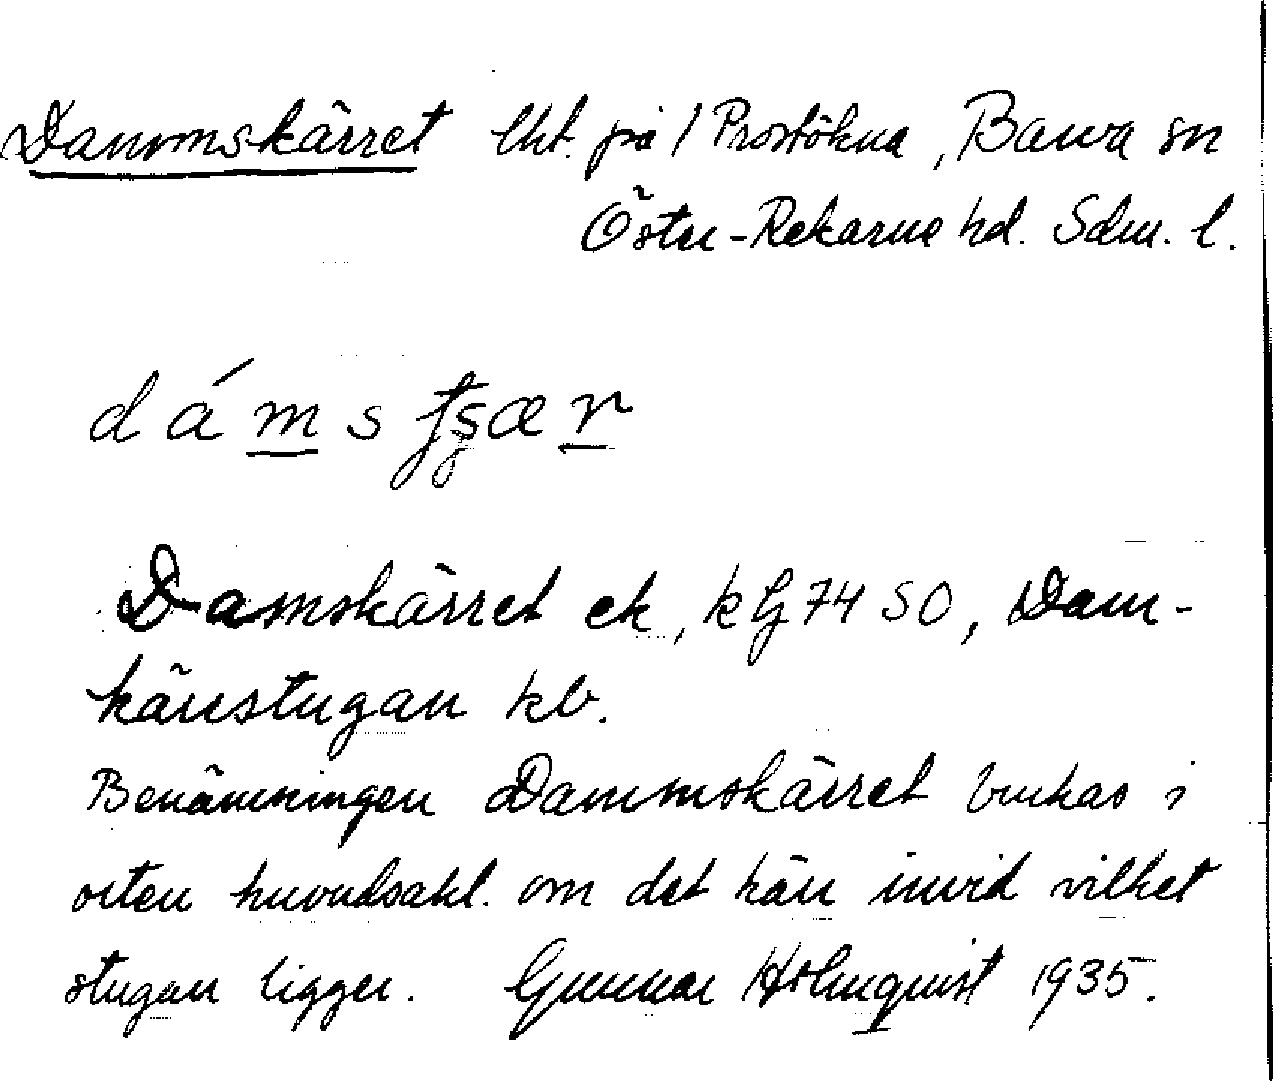 Dammskärret lht. på 1 Prostökna, Barva sn
Öster-Rekarne hd. Sdm. l.
dámstʂær
Damskärret ek, k Hj 74 SO, Dam-
kärrstugan kb.
Benämningen Dammskärret brukas i
orten huvudsakl. om det kärr invid vilket
stugan ligger. Gunnar Holmquist 1935.